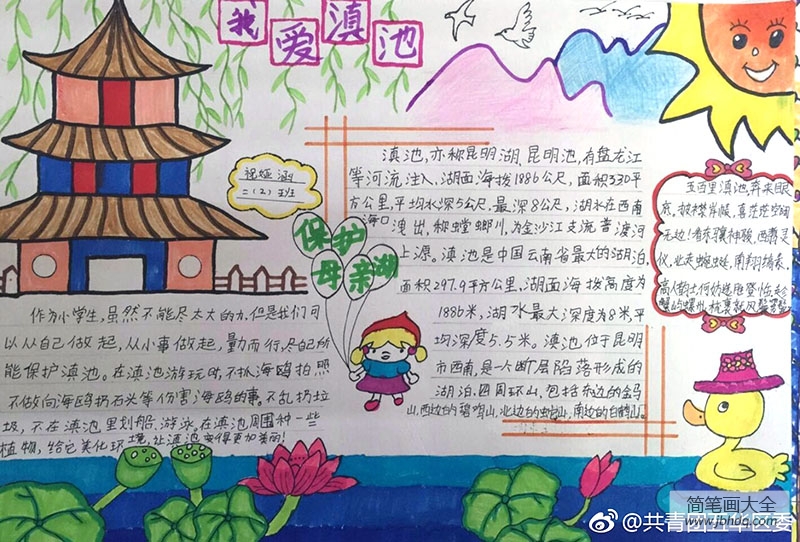 我爱滇池
二(2)班
保护
母亲湖
滇池,亦称昆明湖、昆明池,有盘龙江
等河流注入,湖面海拔1886公尺,面积330平
方公里,平均水深5公尺,最深8公尺,湖水在西南
海口
浅出,称螳螂川,为金沙江支流普渡河
上源。滇池是中国云南省最大的湖泊,
面积297.9平方公里,湖面海拔高度为
1886米,湖水最大深度为8米,平
均深度5.5米。滇池位于昆明
市西南,是一个断层陷落形成的
湖泊。四周环山,包括东边的金马
山,西边的碧鸡山,北边的蛇山,南边的白鹤山。
五百里滇池奔来眼
底,披襟岸帻,喜茫茫空阔
无边!看东骧神骏,西翥灵
仪,北走蜿蜒,南翔缟素。
高人韵士何妨选胜登临,趁
蟹屿螺州,梳裹就风鬟雾鬓
作为小学生,虽然不能尽太大的力,但是我们可
以从自己做起,从小事做起,勤而行,尽自己所
能保护滇池。在滇池游玩时,不抓海鸥拍照
不做向海鸥扔石头等伤害海鸥的事。不乱扔垃
圾,不在滇池里划船、游泳。在滇池周围种一些
植物,给它美化环境,让滇池变得更加美丽!
@共青团五华区委
简笔画大全
www.jbhdq.com